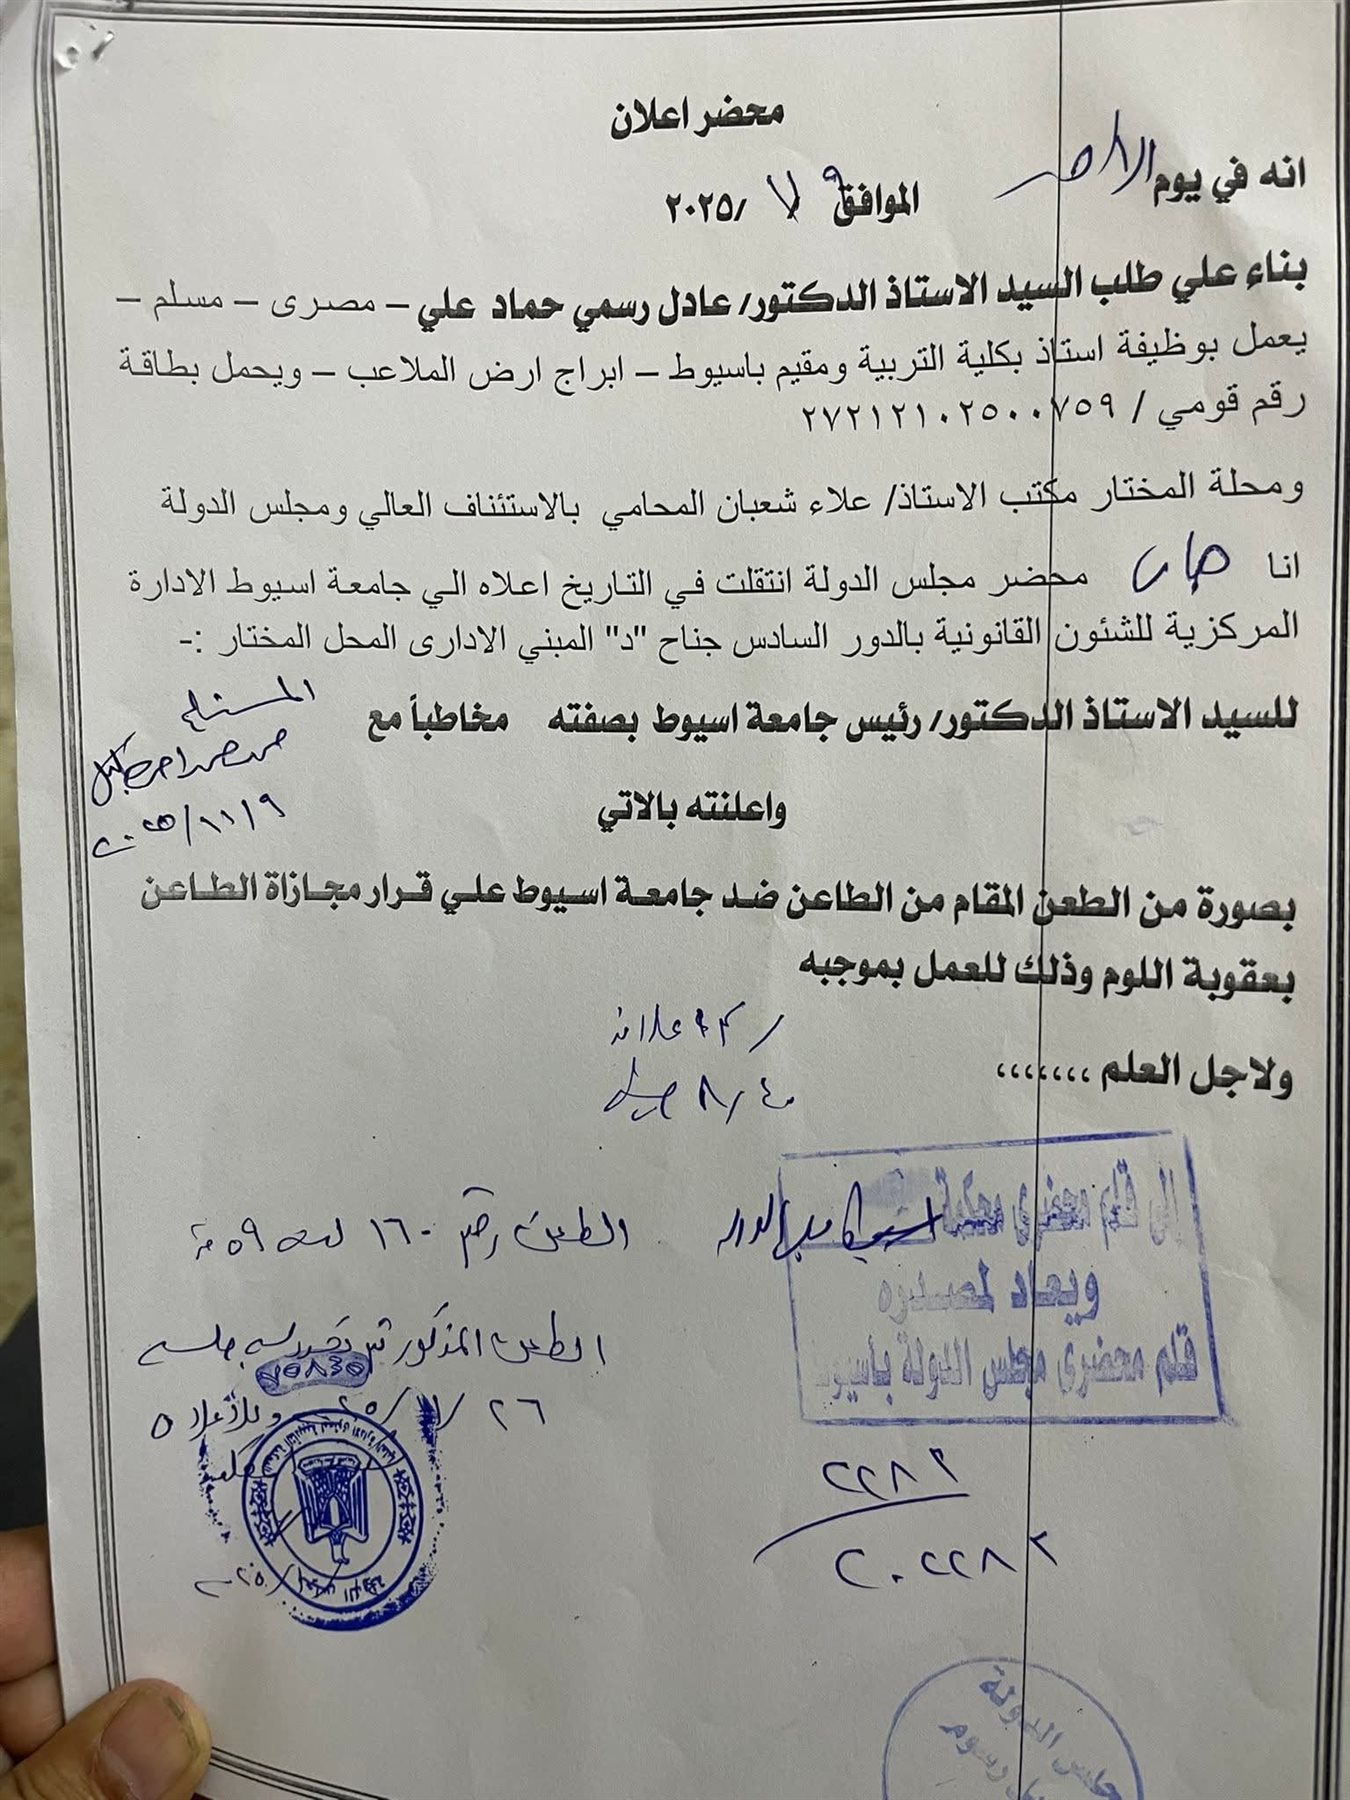 محضر اعلان
انه في يوم الاحد
الموافق ٩ / ١١ /٢٠٢٥
بناء علي طلب السيد الاستاذ الدكتور/ عادل رسمي حماد علي – مصرى – مسلم –
يعمل بوظيفة استاذ بكلية التربية ومقيم باسيوط – ابراج ارض الملاعب – ويحمل بطاقة
رقم قومي / ٢٧٢١٢١٠٢٥٠٠٧٥٩
ومحلة المختار مكتب الاستاذ/ علاء شعبان المحامي بالاستئناف العالي ومجلس الدولة
انا محضر مجلس الدولة انتقلت في التاريخ اعلاه الي جامعة اسيوط الادارة
المركزية للشئون القانونية بالدور السادس جناح "د" المبني الادارى المحل المختار :-
للسيد الاستاذ الدكتور/ رئيس جامعة اسيوط بصفته مخاطباً مع
المستلم
٢٠٢٥/١١/٩
واعلنته بالاتي
بصورة من الطعن المقام من الطاعن ضد جامعة اسيوط علي قرار مجازاة الطاعن
بعقوبة اللوم وذلك للعمل بموجبه
ولاجل العلم ،،،،،،،
الى قلم محضرى محكمة
ويعاد لمصدره
قلم محضرى مجلس الدولة بأسيوط
الطعن رقم ١٦٠ لسنة ٥٩
الطعن المذكور تم تحديد له جلسة
٢٦
٢٢٨٢
٢٠٢٢٨٢
مجلس الدولة